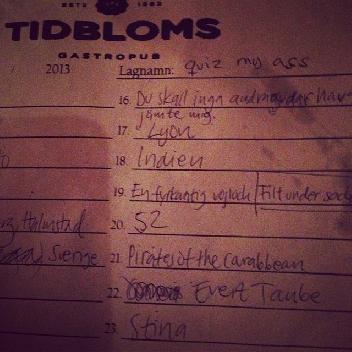 ESTD 1992
TIDBLOMS
GASTROPUB
2013
Lagnamn: quiz my ass
16. Du skall inga andra gudar have
jämte mig.
17. Lyon
18. Indien
19. En fyrkantig | Filt under
Halmstad
20. 52
Sverige
21. Pirates of the carabbean
22. Evert Taube
23. Stina